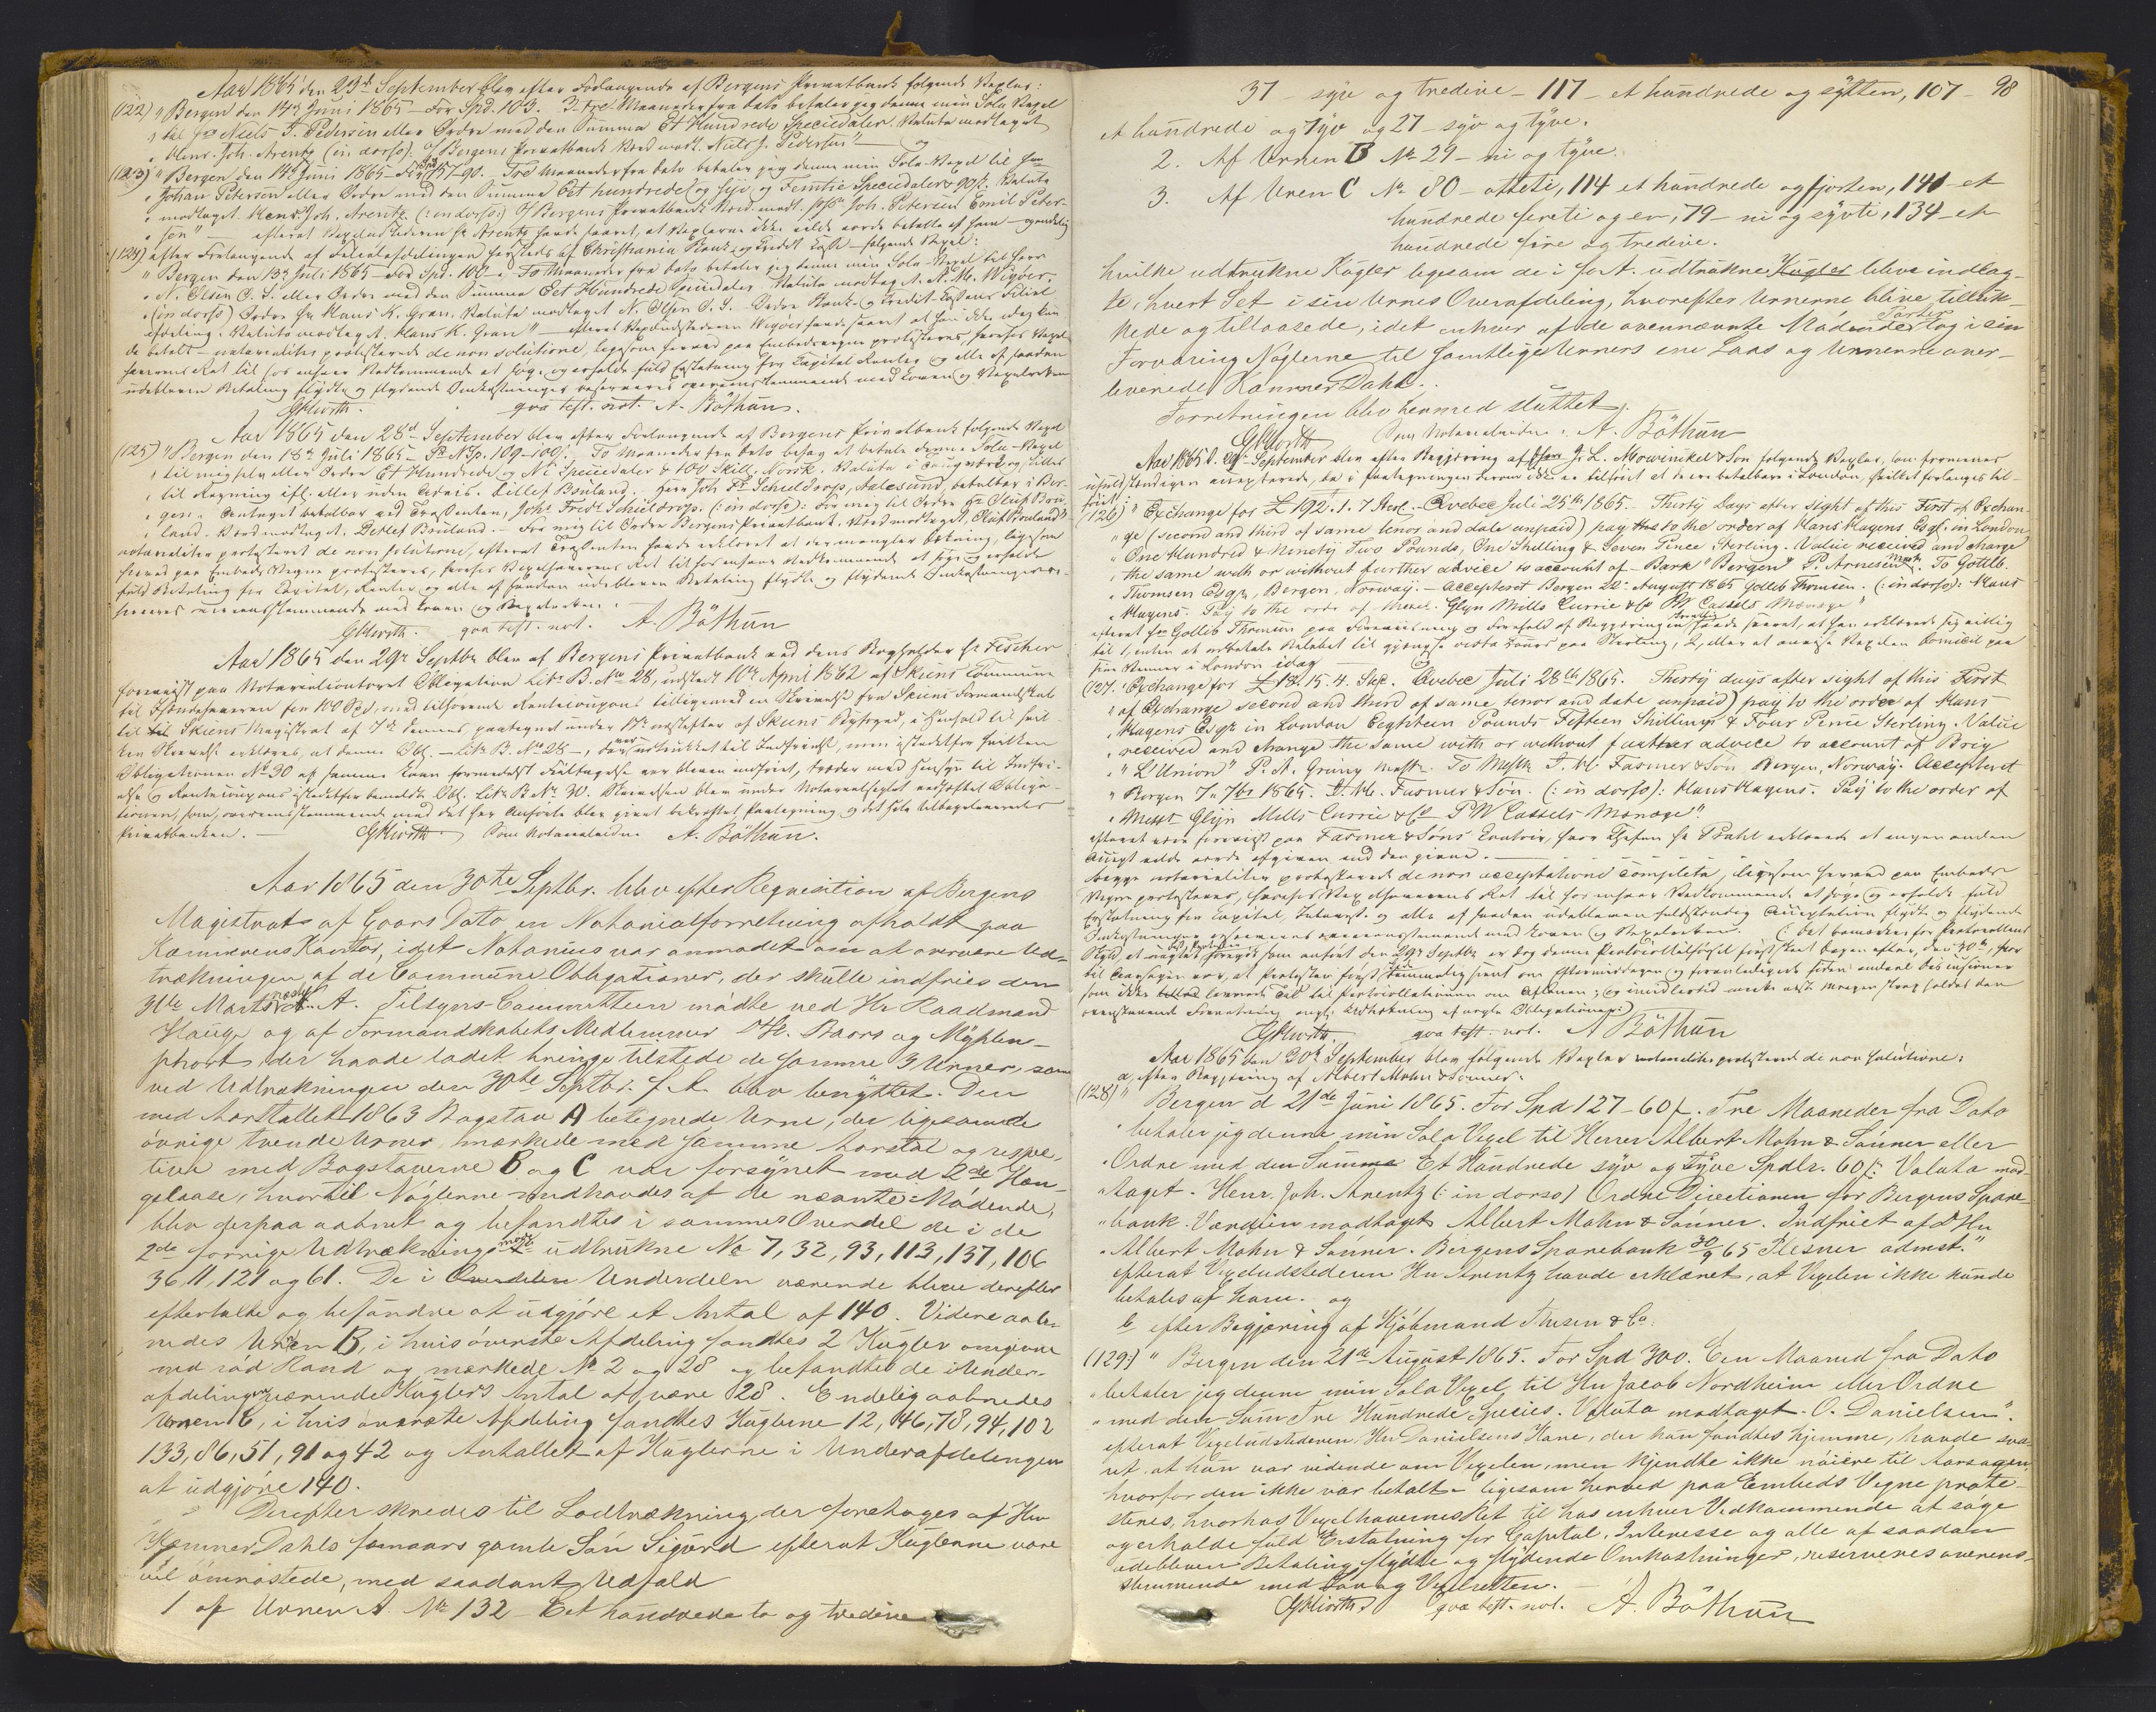 Aar 1865 den 23de September blev efter Forlangende af Bergens Privatbank følgende Vexler:
(122) "Bergen den 14de Juni 1865 – For Spd. 103. Tre Maaneder fra dato betaler jeg denne min Sola Vexel
" til Hr Niels J. Pedersen eller Ordre med den Summa Et Hundrede Speciedaler. Valuta modtaget
" Henr. Joh. Arentz (in dorso): Bergens Privatbank Niels J. Pedersen" og
(123) "Bergen den 14de Juni 1865 – For 157-90. Tre Maaneder fra dato betaler jeg denne min Sola-Vexel til Hrr
" Johan Petersen eller Ordre med den Summa Eet hundrede og syv og Femtie Speciedaler 90 s. Valuta
" modtaget. Henr. Joh. Arentz (: in dorso:) Bergens Privatbank Joh. Petersen Emil Peter-
" sen" efterat Vexeludstederen Hr Arentz havde svaret, at Vexlerne ikke vilde vorde betalte af ham – og endelig
(124) efter Forlangende af Filialafdelingen hersteds af Christiania Bank- og Kredit Kasse – følgende Vexel:
" Bergen den 13de Juli 1865 – For Spd. 100 –. To Maaneder fra dato betaler jeg denne min Sola-Vexel til Herr
" N. Olsen C. S. eller Ordre med den Summa Eet Hundrede Speciedaler Valuta modtaget A. M. Wigøer
" (in dorso) Ordre Hr Hans K. Gran. Valuta modtaget N. Olsen C. S. – Ordre Bank- og Kredit-Kassens Filial
afdeling. Valuta modtaget. Hans K. Gran" – efterat Vexeludstederen Wigøer havde svaret at han ikke idag kun
de betalt – notarialiter protesterede de non solutione, ligesom herved paa Embedsvegne protesteres, hvorhos Vexel-
haverens Ret til hos enhver Vedkommende at søge og erholde fuld Erstatning for Kapital Renter og alle af saadan
udebleven Betaling flydte og flydende Omkostninger reserveres overensstemmende med Loven og Vexelretten
GKiorth. qva test. not. A. Böthun.
Aar 1865 den 28de September blev efter Forlangende af Bergens Privatbank følgende Vexel
(125) "Bergen den 18de Juli 1865 – Pr. N. Sp. 109-100 s. To Maaneder fra dato behag at betale denne Sola-Vexel
" til mig selv eller Ordre Et Hundrede og Ni Speciedaler & 100 Skill. Norsk. Valuta i og stilles
" til Regning ifl. eller uden Advis. Detlef Bruland. Herr Joh Fr Scheldrop, Aalesund, betalbar i Ber-
" gen. Antaget betalbar ved Trassenten, Joh. Fredr Scheldrop. (: in dorso): For mig til Ordre Hr Oluf Bru-
" land. Værd modtaget. Detlef Bruland. – For mig til Ordre Bergens Privatbank. Værd modtaget, Oluf Bruland"
notarialiter protesteret de non solutione, efterat Trassenten havde erklæret at der mangler Dækning, ligesom
herved paa Embeds Vegne protesteres, hvorhos Vexelhaverens Ret til hos enhver Vedkommende at søge og erholde
fuld Betaling for Capital, Renter og alle af saadan udebleven Betaling flydte og flydende Omkostninger re-
serveres overensstemmende med Loven og Vexelretten.
GKiorth. qva test. not. A. Böthun
Aar 1865 den 29de Septbr blev af Bergens Privatbank ved dens Bogholder Hr Fischer
forevist paa Notarialcontoret Obligation Litr. B. No 28, udstedt 10de April 1862 af Skiens Commune
til Ihændehaveren for 100 Spd, med tilhørende Rentecoupons tilligemed en Skrivelse fra Skiens Formandskab
til Skiens Magistrat af 7de dennes, paategnet under 17de næstefter af Skiens Byfoged, i Henhold til hvil-
ken Skrivelse erklæres, at denne Obl. – Litr. B. No 28 –, der var udtrukket til Indfrielse, men istedetfor hvilken
Obligationen No 30 af samme Laan formedelst Feiltagelse var bleven indfriet, træder med Hensyn til Indfri-
else og Rentecoupons istedetfor bemeldte Obl. Litr. B No 30. Skrivelsen blev under Notarialseglet vedheftet Obliga-
tionen, som, overensstemmende med det her Anførte blev given bekræftet Paategning og det Hele tilbageleveredes
Privatbanken. – GKiorth. Som Notarialvidne A. Böthun.
Aar 1865 den 30te Septbr. blev efter Requisition af Bergens
Magistrat af Gaars Dato en Notarialforretning afholdt paa
Kæmnerens Kontor, idet Notarius var anmodet om at overvære Ud-
trækningen af de Commune Obligationer, der skulle indfries den
31te Marts næste A. Tilsyns-Committeen mødte ved Hr Raadmand
Hauge og af Formandskabets Medlemmer DHr. Baars og Myhlen-
phort der havde ladet bringe tilstede de samme 3 Urner, som
ved Udtrækningen den 30te Septbr. f. A. blev benyttet. Den
med Aarstallet 1863 Bogstav A betegnede Urne, der ligesom de
øvrige tvende Urner, mærkede med samme Aarstal og respec-
tive med Bogstaverne B og C var forsynet med 2de Hæn-
gelaase, hvortil Nøglerne indhavdes af de nævnte Mødende,
blev derpaa aabnet og befandtes i sammes Overdel de i de
2de forrige Udtrækninger udtrukne No 7, 32, 93, 113, 137, 106
36, 11, 121 og 61. De i Overdelen Underdeln værende blev derefter
eftertalte og befandtes at udgjøre et Antal af 140. Videre aabn-
nedes Urnen B, i hvis øverste Afdeling fandtes 2 Kugler omgivne
med rød Rand og mærkede No 2 og 28 og befandtes de i Under-
afdelingen værende Kuglers Antal at være 28. Endelig aabnedes
Urnen C, i hvis øverste Afdeling fandtes Kuglerne 12, 46, 78, 94, 102
133, 86, 51, 91 og 42 og Antallet af Kuglerne i Underafdelingen
at udgjøre 140.
Derefter skredes til Lodtrækning der foretoges af Hr
Kæmner Dahls femaars gamle Søn Sigurd efterat Kuglerne vare
vel omrøstede, med saadant Udfald
1 af Urnen A No 132 – Eet hundrede to og tredive
98
37 – syv og tredive – 117 – et hundrede og sytten, 107 –
et hundrede og syv og 27 – syv og tyve.
2. Af Urnen B No 29 – ni og tyve.
3. Af Urnen C No 80 – otteti, 114 et hundrede og fjorten, 141 – et
hundrede fireti og en, 79 – ni og syvti, 134 – et
hundrede fire og tredive.
hvilke udtrukne Kugler ligesom de i for A. udtrukne Kugler bleve indlag-
te, hvert Set i sin Urnes Overafdeling, hvorefter Urnerne bleve tilluk-
kede og tillaasede, idet enhver af de ovennævnte Mødende Parter tog i sin
Forvaring Nøglerne til samtlige Urners ene Laas og Urnerne over-
leveredes Kæmner Dahl.
Forretningen blev hermed sluttet.
GKiorth Som Notarialvidne: A. Böthun
Aar 1865 d. 29de September blev efter Begjæring af Hrr J. L. Mowinckel & Søn følgende Vexler, som formenes
ufuldstændigen accepterede, da i Paategningen derom ikke er tilføiet at de ere betalbare i London, hvilket forlanges til-
føiet:
(126) "Exchange for £ 192. 1. 7 Sterl. – Qvebec Juli 25th 1865. Thirty Days after sight of this First of Exchan-
" ge (second and third of same tenor and date unpaid) pay to the order of Hans Hagens Esqr. in London
" One Hundred & Ninety Two Pounds, One Shilling & Seven Pence Sterling. Value received and charge
" the same with or without further advice to account of – Bark "Bergen" P. Arnesen Mastr. To Gottlb.
" Thomsen Esqr, Bergen, Norway. – Accepteret Bergen 22. August 1865 Gotleb Thomsen. (: in dorso): Hans
" Hagens. Pay to the order of Messr. Glyn Mills Currie & Co PW Cassels Manager"
efterat Hrr Gotlieb Thomsen paa Forevisning og Foreholdt af Begjæringen havde svaret, at han erklærede sig villig
til 1, enten at udbetale Beløbet til gjængse vista Cours paa Sterling, 2, eller at anvise Vexelen Domicil paa
sine Venner i London idag og
(127. "Exchange for £ 18 15. 4. Ster. Qvebec Juli 28th 1865. Thirty days after sight of this First
" of Exchange second and third of same tenor and date unpaid) pay to the order of Hans
" Hagens Esqr in London Eeghteen Pounds Fefteen Shillings & Four Pence Sterling. Value
" received and charge the same with or without farther advice to account of Brig
" "L'Union" P. A. Grüny Mastr. To Messrs T. M. Fasmer & Søn Bergen, Norway. Accepteret
" Bergen 7. 7br 1865. T. M. Fasmer & Søn. (: in dorso): Hans Hagens. Pay to the order of
" Messr Glyn Mills Currie & Co PW Cassels Manager".
efterat være forevist paa Fasmer & Søns Contoir, hvor Chefen Hr Prahl erklærede at ingen anden
Accept vilde vorde afgiven end den givne.
begge notarialiter protesterede de non acceptatione completa, ligesom herved paa Embeds
Vegne protesteres, hvorhos Vexelhaverens Ret til hos enhver Vedkommende at søge og erholde fuld
Erstatning for Capital, Interesse og alle af saadan udebleven fuldstændig Acceptation flydte og flydende
Omkostninger reserveres overensstemmende med Loven og Vexelretten. (: Det bemærkes for Protocollens
Skyld, at uagtet Protesten foregik som anført den 29de Septbr er dog denne Protocoltilførsel først skeet Dagen efter, den 30te, hvor
til Aarsagen var, at Protesten først skeede temmelig seent om Eftermiddagen og foranledigede siden endeel Discussioner
som ikke levnede Tid til Protocollationen om Aftenen; og imidlertid maatte næste Morgen strax holdes den
ovenstaaende Forretning angl. Udtrækning af nogle Obligationer:)
GKiorth, qva test. not. A Böthun
Aar 1865 den 30te September blev følgende Vexler notarialiter protesterede de non solutione:
a, efter Begjæring af Albert Mohn & Sønner:
(128) " Bergen d 21de Juni 1865. For Spd 127-60 s. Tre Maaneder fra Dato
" betaler jeg denne min Sola Vexel til Herrer Albert Mohn & Sønner eller
" Ordre med den Summa Et Hundrede syv og tyve Spdlr. 60 s. Valuta mod-
" taget. Henr. Joh. Arentz (: in dorso) Ordre Directionen for Bergens Spare-
" bank. Værdien modtaget Albert Mohn & Sønner. Indfriet af DHrr
" Albert Mohn & Sønner. Bergens Sparebank 30/9 65 Plesner admst."
efterat Vexeludstederen Hr Arentz havde erklæret, at Vexelen ikke kunde
betales af ham. og
b efter Begjæring af Kjøbmand Thesen & Co.
(129:) " Bergen den 21de August 1865. For Spd 300. Een Maaned fra Dato
" betaler jeg denne min Sola Vexel til Hr Jacob Nordheim eller Ordre
" med den Sum Tre Hundrede Species. Valuta modtaget. O. Danielsen".
efterat Vexeludstederen Hr Danielsens Kone, der kun fandtes hjemme, havde sva-
ret, at hun var vidende om Vexelen, men kjendte ikke nøiere til Aarsagen,
hvorfor den ikke var betalt – ligesom herved paa Embeds Vegne prote-
steres, hvorhos Vexelhaverens Ret til hos enhver Vedkommende at søge
og erholde fuld Erstatning for Capital, Interesse og alle af saadan
udebleven Betaling flydte og flydende Omkostninger, reserveres overens-
stemmende med Lov og Vexelretten.
GKiorth. qva test. not. A. Böthun